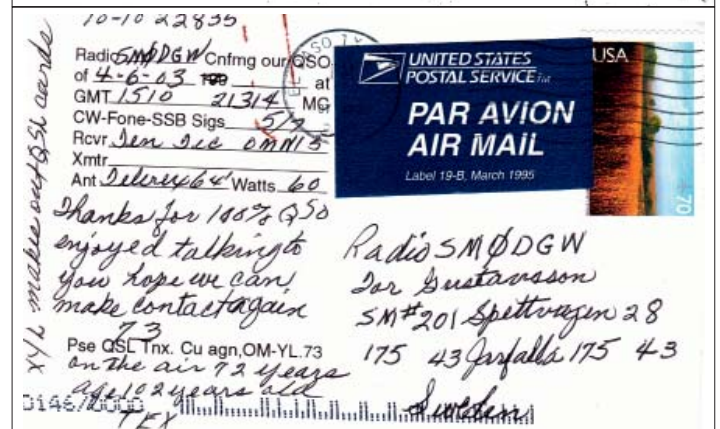 10-10 22835
Radio SMØDGW Cnfmg our QSO
of 4-6-03 199 at
GMT 1510 21314 MC
CW-Fone-SSB Sigs 5/9
Rcvr Ten Tec OMNI 5
Xmtr
Ant Telerex 64' Watts 60
Thanks for 100% QSO
enjoyed talking to
you hope we can
make contact again
73
Pse QSL Tnx. Cu agn, OM-YL.73
on the air 72 years
age 102 years old
TEX
XYL makes out QSL cards
UNITED STATES
POSTAL SERVICE
PAR AVION
AIR MAIL
Label 19-B, March 1995
USA
70
Radio SMØDGW
Tor Gustavsson
SM#201 Spettvagen 28
175 43 Jarfalla 175 43
Sweden